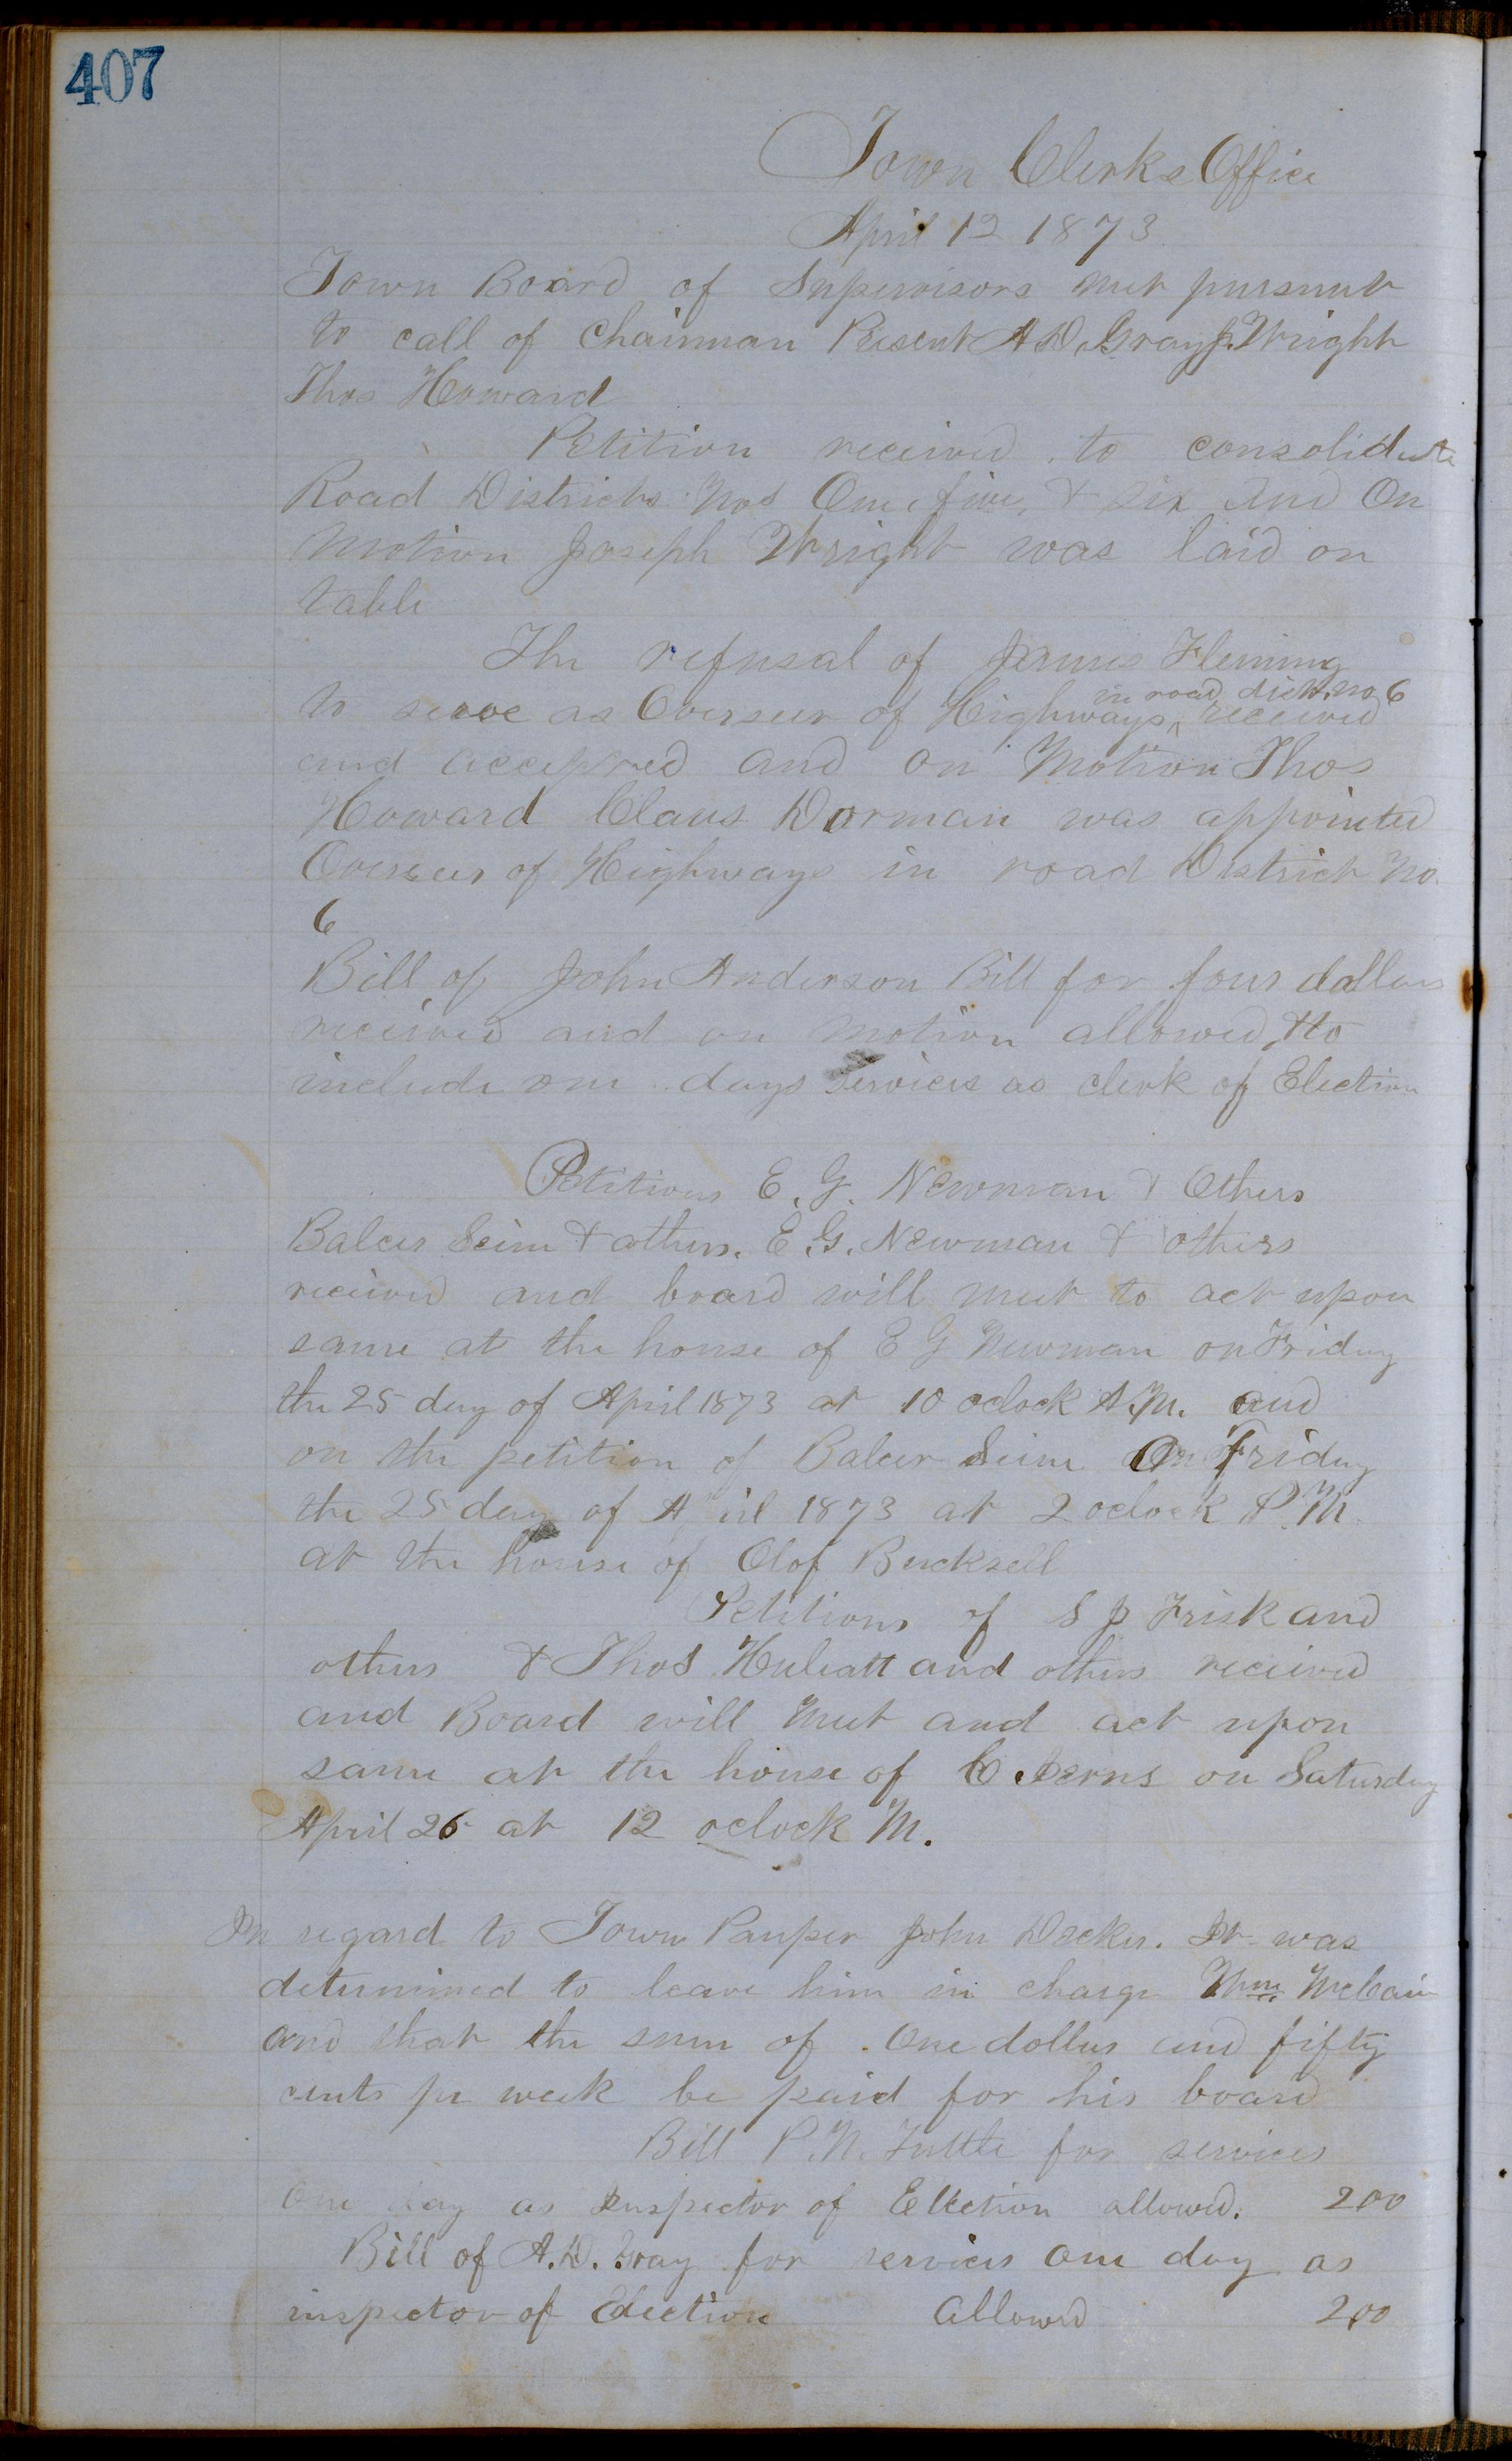 407
Town Clerks Office
April 12 1873
Town Board of Supervisors met pursuant
to call of Chairman Present A.D. Gray J. Wright
Thos Howard
Petition received to consolidate
Road Districts Nos One, five, & six and On
motion Joseph Wright was laid on
table
The refusal of James Fleming
in road dist. no 6
to serve as Overseer of Highways ^ received
and accepted and on Motion Thos
Howard Claus Dorman was appointed
Overseer of Highways in road District No.
6
Bill of John Anderson Bill for four dollars
received and on motion allowed, & to
include one days services as clerk of Election
Petitions E. G. Newman & Others
Balcer Seim & others. E. G. Newman & others
received and board will meet to act upon
same at the house of E G Newman on Friday
the 25 day of April 1873 at 10 oclock A.M. and
on the petition of Balcer Seim On Friday
the 25 day of April 1873 at 2 oclock P.M.
at the house of Olof Bucksell
Petitions of S J Frisk and
others & Thos Huleatt and others received
and Board will meet and act upon
same at the house of on Saturday
April 26 at 12 oclock M.
In regard to Town Pauper John Decker. It was
determined to leave him in charge Wm. McCain
and that the sum of One dollar and fifty
cents pr week be paid for his board
Bill P. N. Tuttle for services
One day as Inspector of Election allowed. 2.00
Bill of A.D. Gray for services One day as
inspector of Election Allowed 2.00